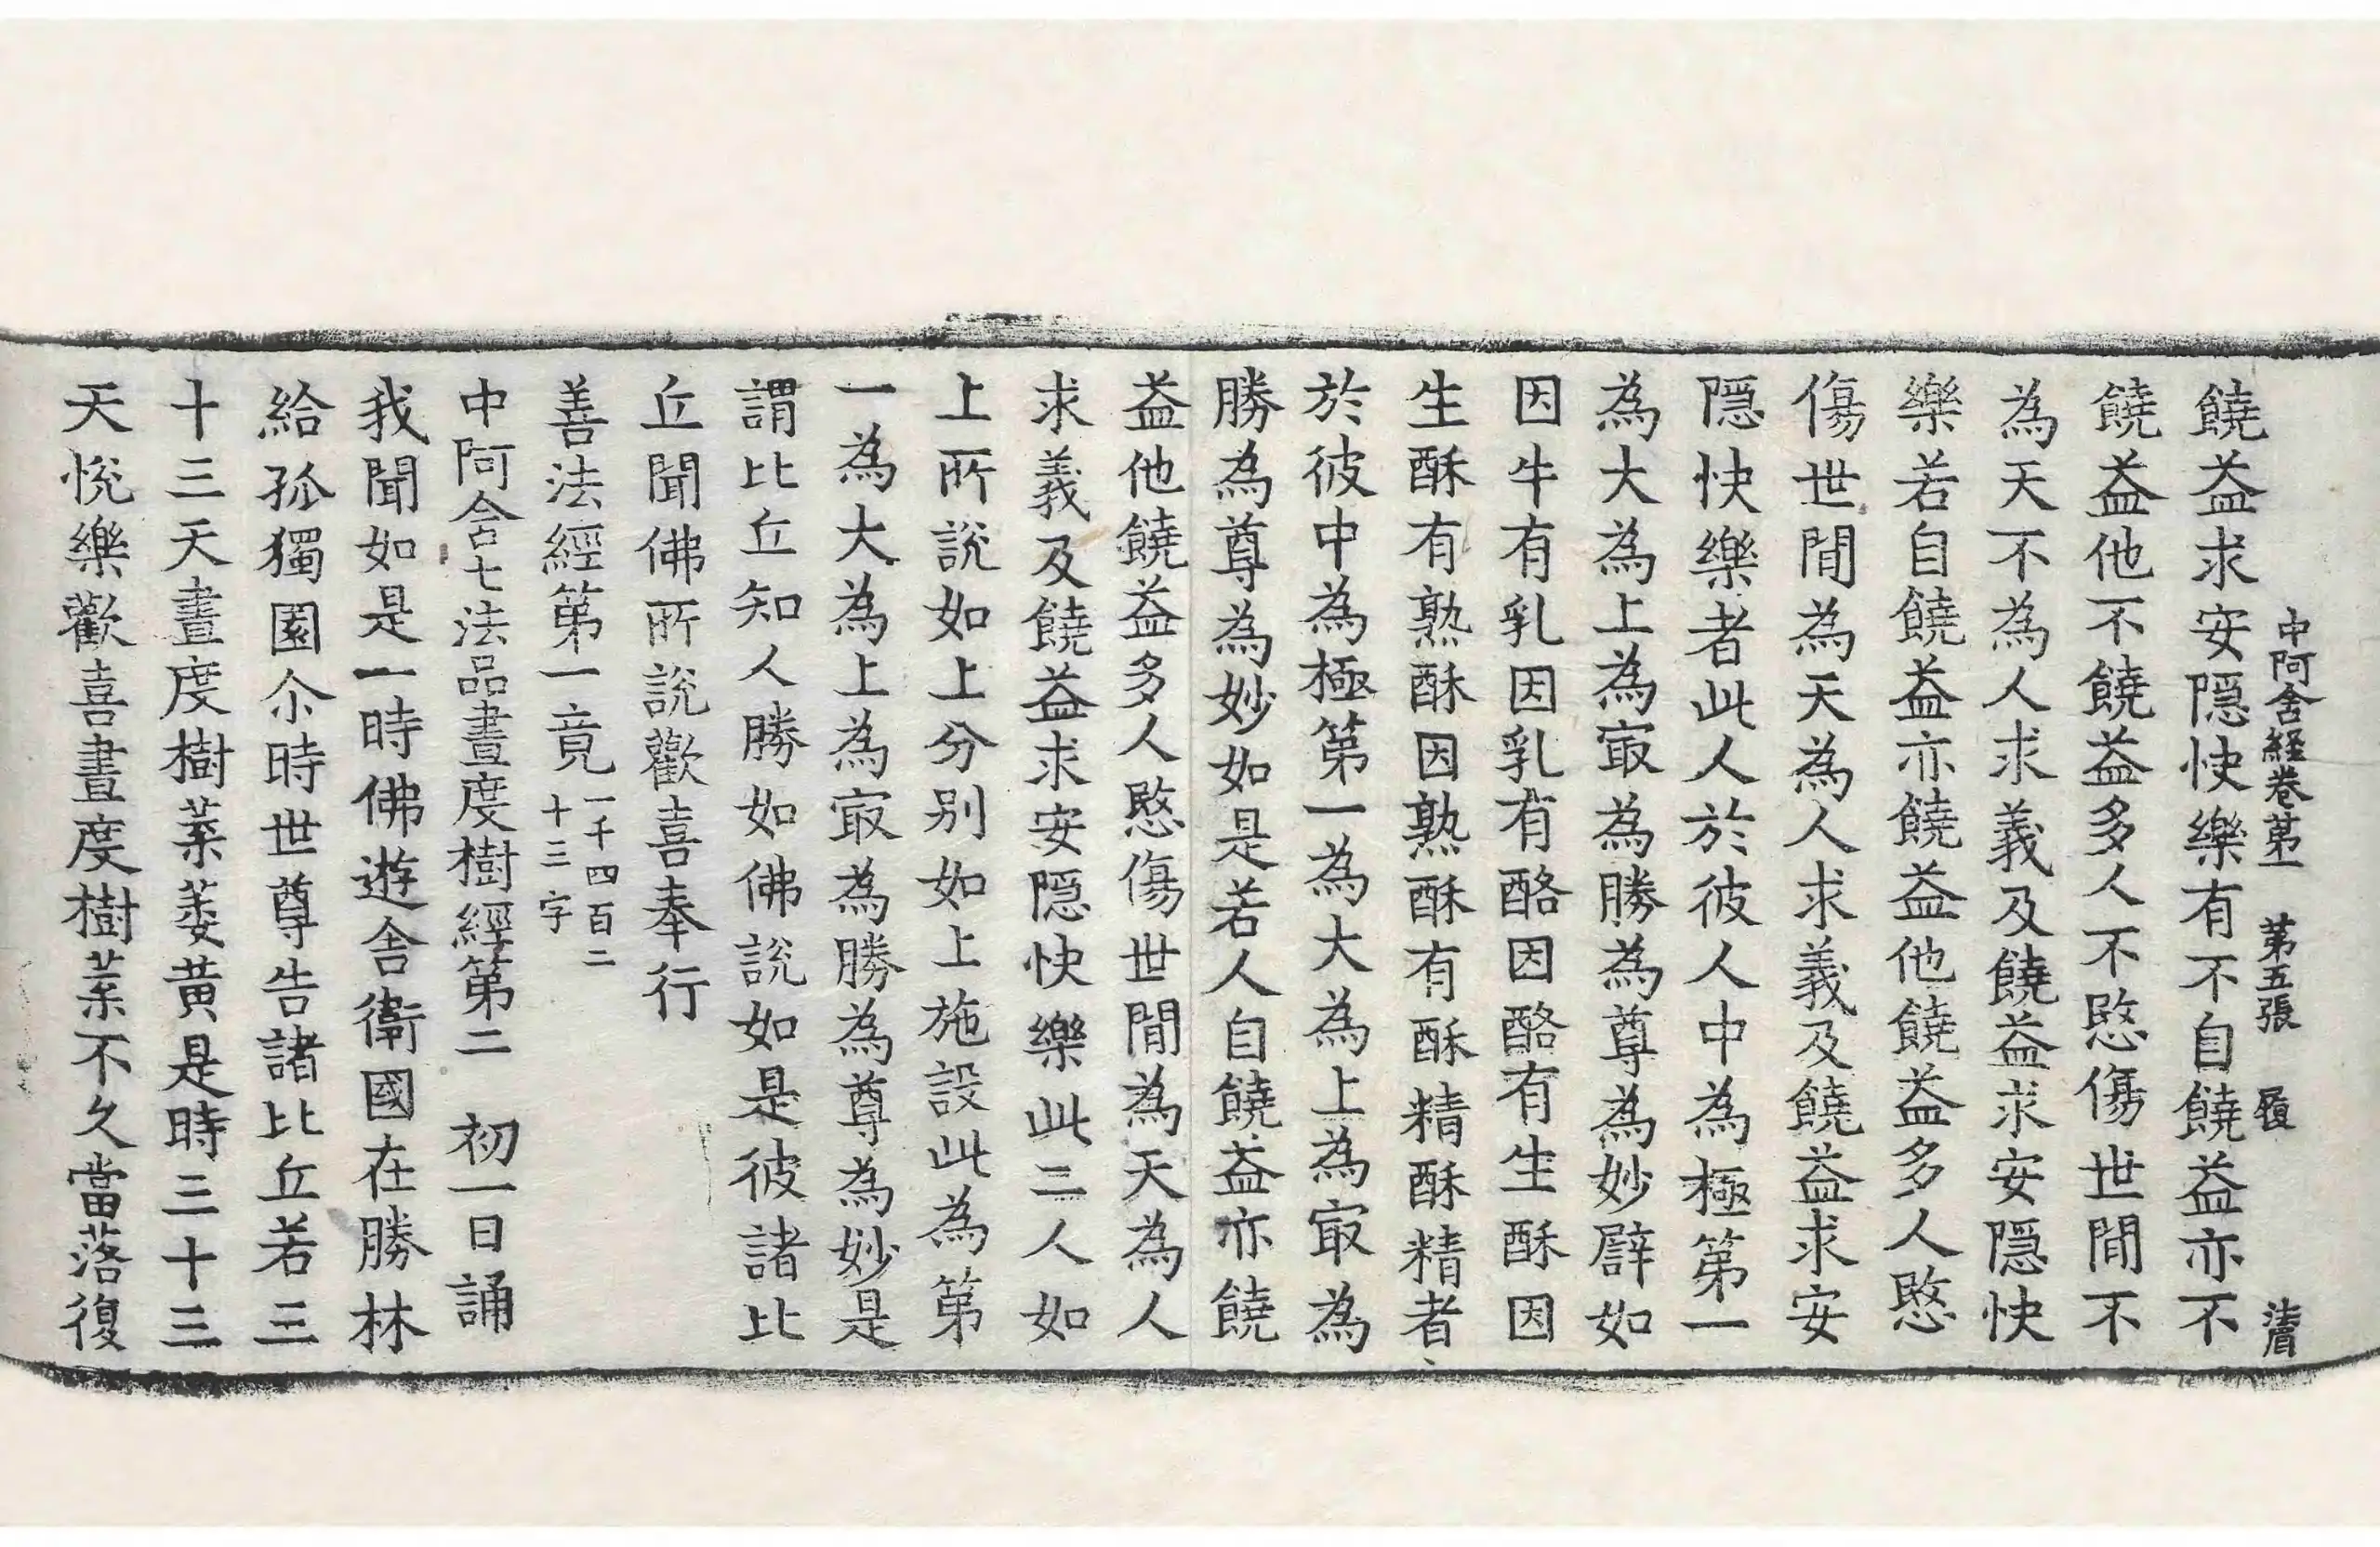 中阿含経卷苐一 苐五張 履 清眉
饒益求安隠快樂有不自饒益亦不
饒益他不饒益多人不愍傷世間不
為天不為人求義及饒益求安隠快
樂若自饒益亦饒益他饒益多人愍
傷世間為天為人求義及饒益求安
隠快樂者此人於彼人中為極第一
為大為上為㝡為勝為尊為妙譬如
因牛有乳因乳有酪因酪有生酥因
生酥有熟酥因熟酥有酥精酥精者
於彼中為極第一為大為上為㝡為
勝為尊為妙如是若人自饒益亦饒
益他饒益多人愍傷世間為天為人
求義及饒益求安隠快樂此二人如
上所說如上分別如上施設此為第
一為大為上為㝡為勝為尊為妙是
謂比丘知人勝如佛說如是彼諸比
丘聞佛所說歡喜奉行
善法經第一竟一千四百二
十三字
中阿含七法品晝度樹經第二 初一日誦
我聞如是一時佛遊舍衞國在勝林
給孤獨園尒時世尊告諸比丘若三
十三天晝度樹葉萎黃是時三十三
天悅樂歡喜晝度樹葉不久當落復